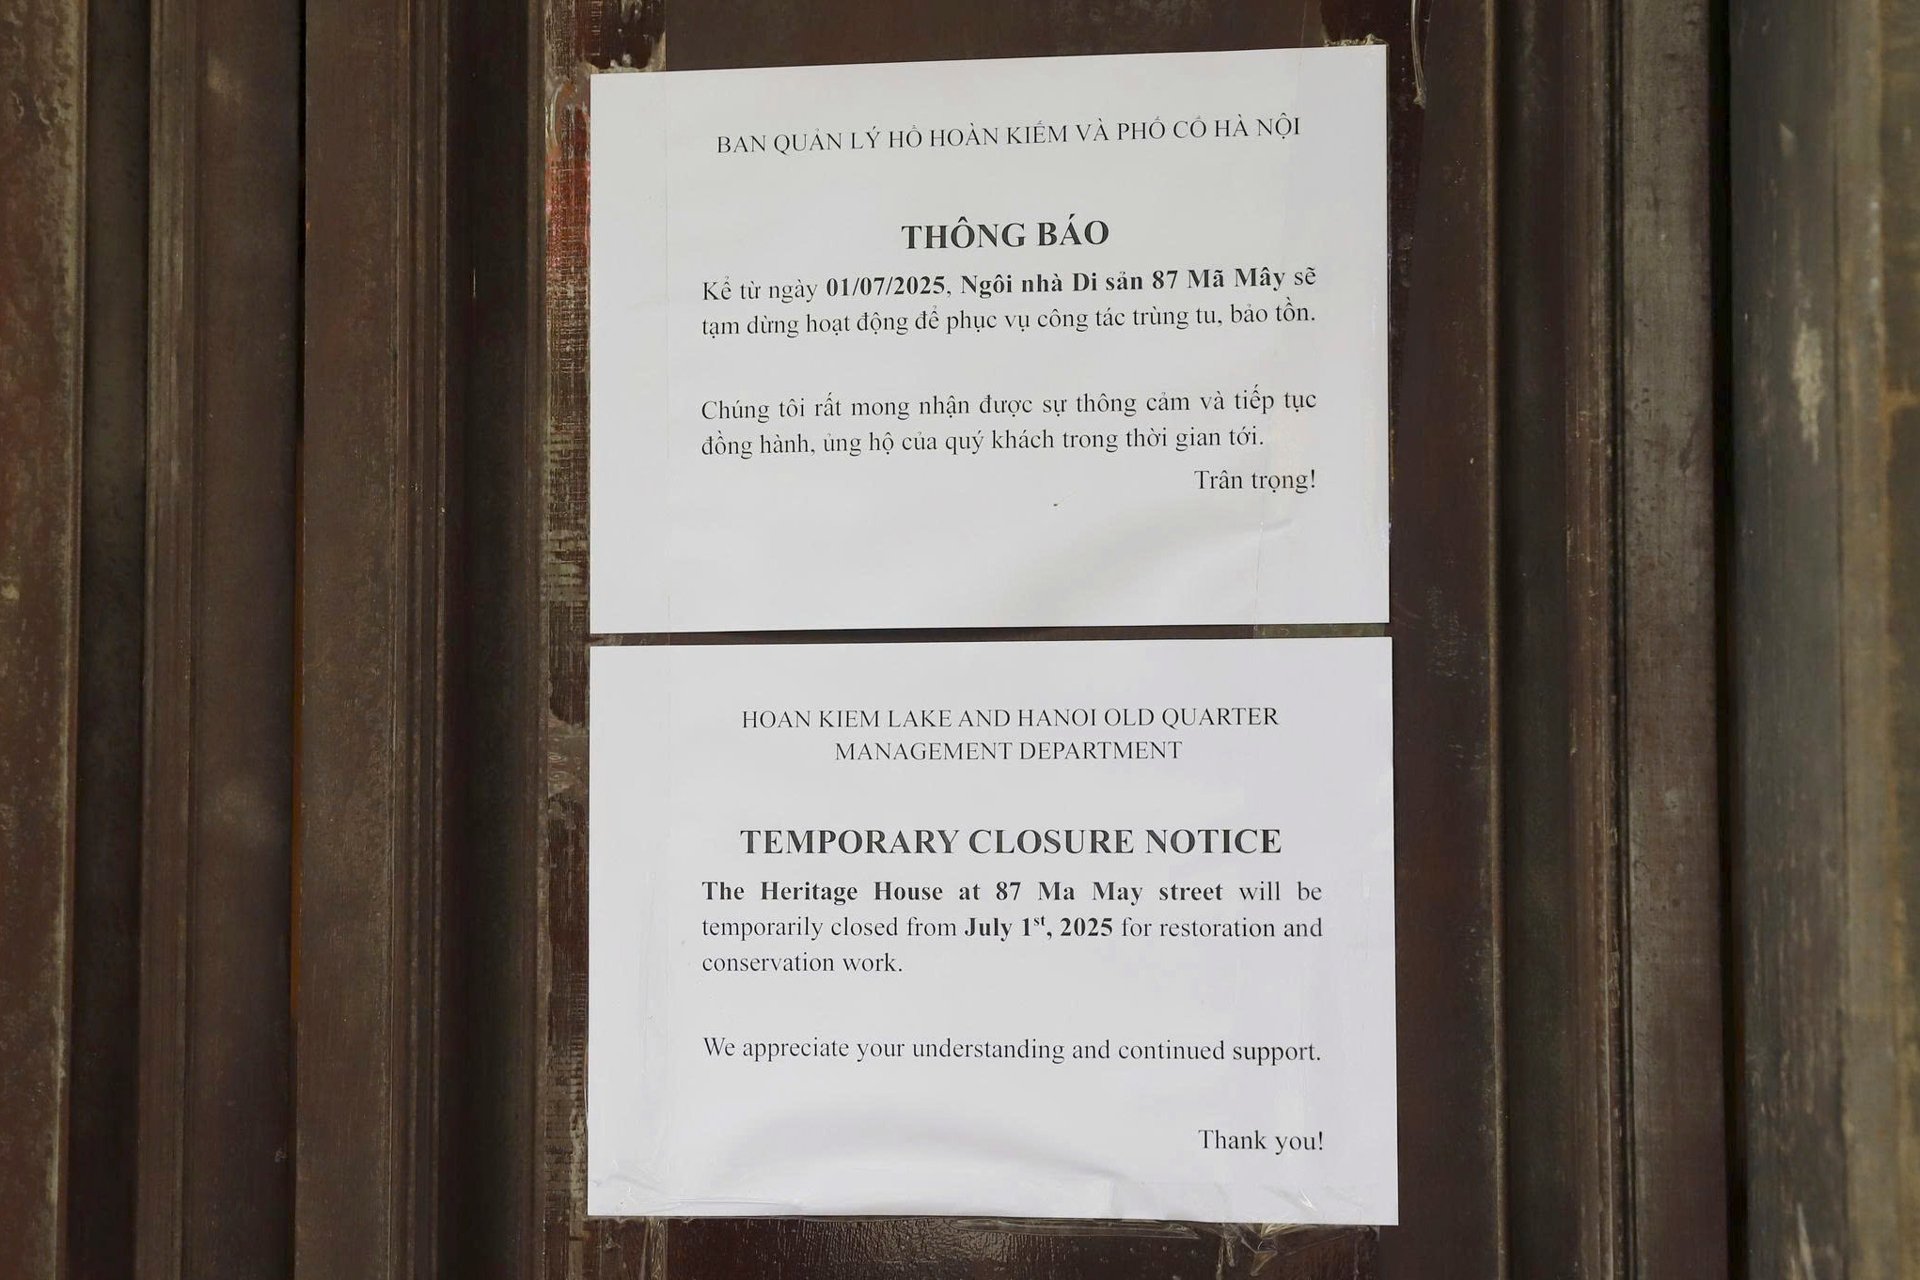 BAN QUẢN LÝ HỒ HOÀN KIẾM VÀ PHỐ CỔ HÀ NỘI
THÔNG BÁO
Kể từ ngày 01/07/2025, Ngôi nhà Di sản 87 Mã Mây sẽ
tạm dừng hoạt động để phục vụ công tác trùng tu, bảo tồn.
Chúng tôi rất mong nhận được sự thông cảm và tiếp tục
đồng hành, ủng hộ của quý khách trong thời gian tới.
Trân trọng!
HOAN KIEM LAKE AND HANOI OLD QUARTER
MANAGEMENT DEPARTMENT
TEMPORARY CLOSURE NOTICE
The Heritage House at 87 Ma May street will be
temporarily closed from July 1st, 2025 for restoration and
conservation work.
We appreciate your understanding and continued support.
Thank you!